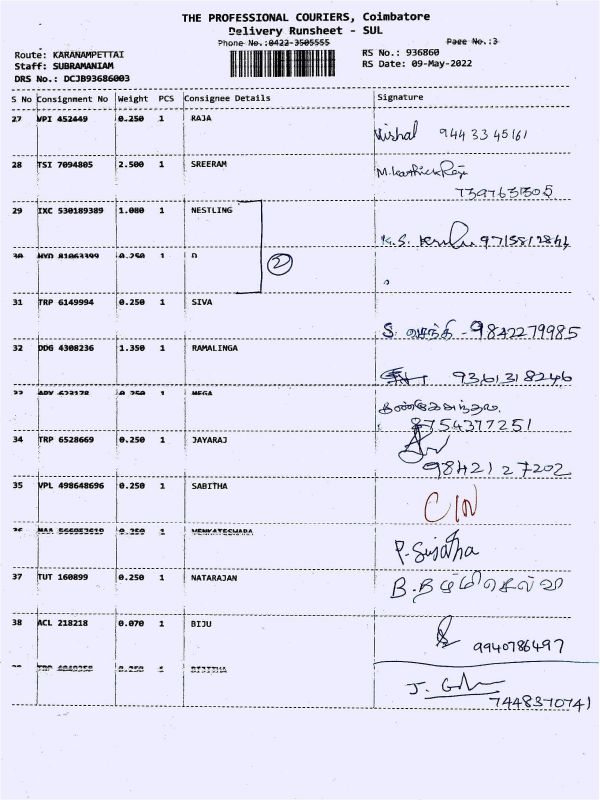 THE PROFESSIONAL COURIERS, Coimbatore
Delivery Runsheet - SUL
Phone No.:0422-3505555
Page No.:3
Route: KARANAMPETTAI
RS No.: 936860
Staff: SUBRAMANIAM
RS Date: 09-May-2022
DRS No.: DCJB93686003
S No Consignment No Weight PCS Consignee Details Signature
27 VPI 452449 0.250 1 RAJA
Vishal 94433 45161
28 TSI 7094805 2.500 1 SREERAM
M. Karthick Raja
7397631505
29 IXC 530189389 1.080 1 NESTLING
K.S. 9715812844
30 HYD 81063399 0.250 1 D
2
31 TRP 6149994 0.250 1 SIVA
S. வசந்தி - 9842279985
32 DDG 4308236 1.350 1 RAMALINGA
9361318246
33 623178 0.250 1 MEGA
8754377251
34 TRP 6528669 0.250 1 JAYARAJ
9842127202
35 VPL 498648696 0.250 1 SABITHA
36 MAA 0.250 1 VENKATESWARA
P. Sujatha
37 TUT 160899 0.250 1 NATARAJAN
B. தமிழ்செல்வி
38 ACL 218218 0.070 1 BIJU
9940786497
39 TRP 0.250 1
J.
7448370741